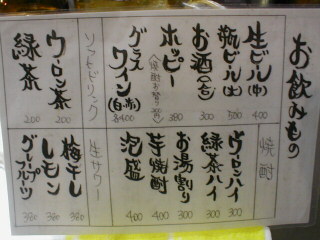 お飲みもの
生ビール(中) 400
瓶ビール(大) 500
お酒(一合) 300
ホッピー 380
グラスワイン(白・赤) 各400
ソフトドリンク
ウーロン茶 200
緑茶 200
焼酎
ウーロンハイ 300
緑茶ハイ 300
お湯割り 300
芋焼酎 400
泡盛 400
生サワー
梅干し 380
レモン 380
グレープフルーツ 380